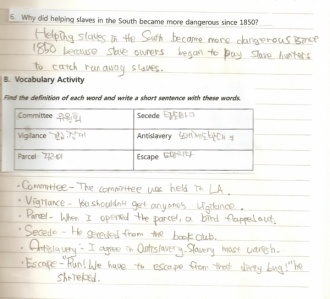 6. Why did helping slaves in the South become more dangerous since 1850?
Helping slaves in the South became more dangerous since
1850 because slave owners began to pay slave hunters
to catch runaway slaves.
B. Vocabulary Activity
Find the definition of each word and write a short sentence with these words.
Committee 위원회
Secede
Vigilance
Antislavery
Parcel
Escape
· Committee - The committee was held in LA.
· Vigilance - You shouldn't get anyone's vigilance.
· Parcel - When I opened the parcel, a bird flapped out.
· Secede - He seceded from the book club.
· Antislavery - I agree in Antislavery. Slavery must vanish.
· Escape - "Run! We have to escape from that dirty bug!" he
shrieked.